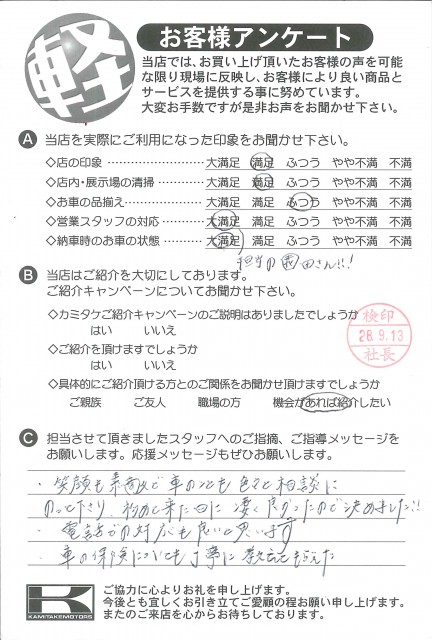 軽
お客様アンケート
当店では、お買い上げ頂いたお客様の声を可能
な限り現場に反映し、お客様により良い商品と
サービスを提供する事に努めています。
大変お手数ですが是非お声をお聞かせ下さい。
A 当店を実際にご利用になった印象をお聞かせ下さい。
◇店の印象 ………………… 大満足 満足 ふつう やや不満 不満
◇店内・展示場の清掃 ………… 大満足 満足 ふつう やや不満 不満
◇お車の品揃え ……………… 大満足 満足 ふつう やや不満 不満
◇営業スタッフの対応 ………… 大満足 満足 ふつう やや不満 不満
◇納車時のお車の状態 ………… 大満足 満足 ふつう やや不満 不満
担当の園田さん!!!
B 当店はご紹介を大切にしてあります。
ご紹介キャンペーンについてお聞かせ下さい。
◇カミタケご紹介キャンペーンのご説明はありましたでしょうか
はい いいえ
◇ご紹介を頂けますでしょうか
はい いいえ
◇具体的にご紹介頂ける方とのご関係をお聞かせ頂けますでしょうか
ご親族 ご友人 職場の方 機会があれば紹介したい
検印
28.9.13
社長
C 担当させて頂きましたスタッフへのご指摘、ご指導メッセージを
お願いします。応援メッセージもぜひお願いします。
・笑顔も素敵で車のことも色々と相談に
のってたり、初めて来た日に凄く良かったので決めました!!
・電話での対応も良いと思います
・車の保険についても丁寧に教えてもらえた
K
KAMITAKEMOTORS
ご協力に心よりお礼を申し上げます。
今後とも宜しくお引き立てご愛顧の程お願い申し上げます。
またのご来店を心からお待ちしております。